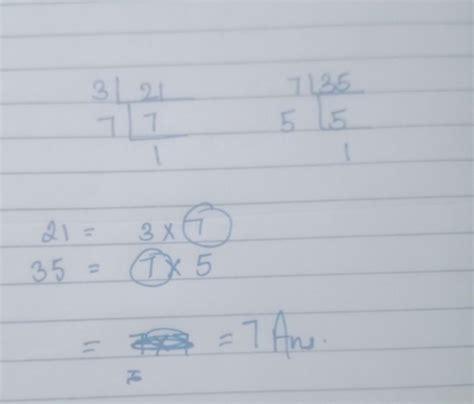 3 21 7 35
7 7 5 5
1 1
21 = 3 × 7
35 = 7 × 5
= = 7 Ans.